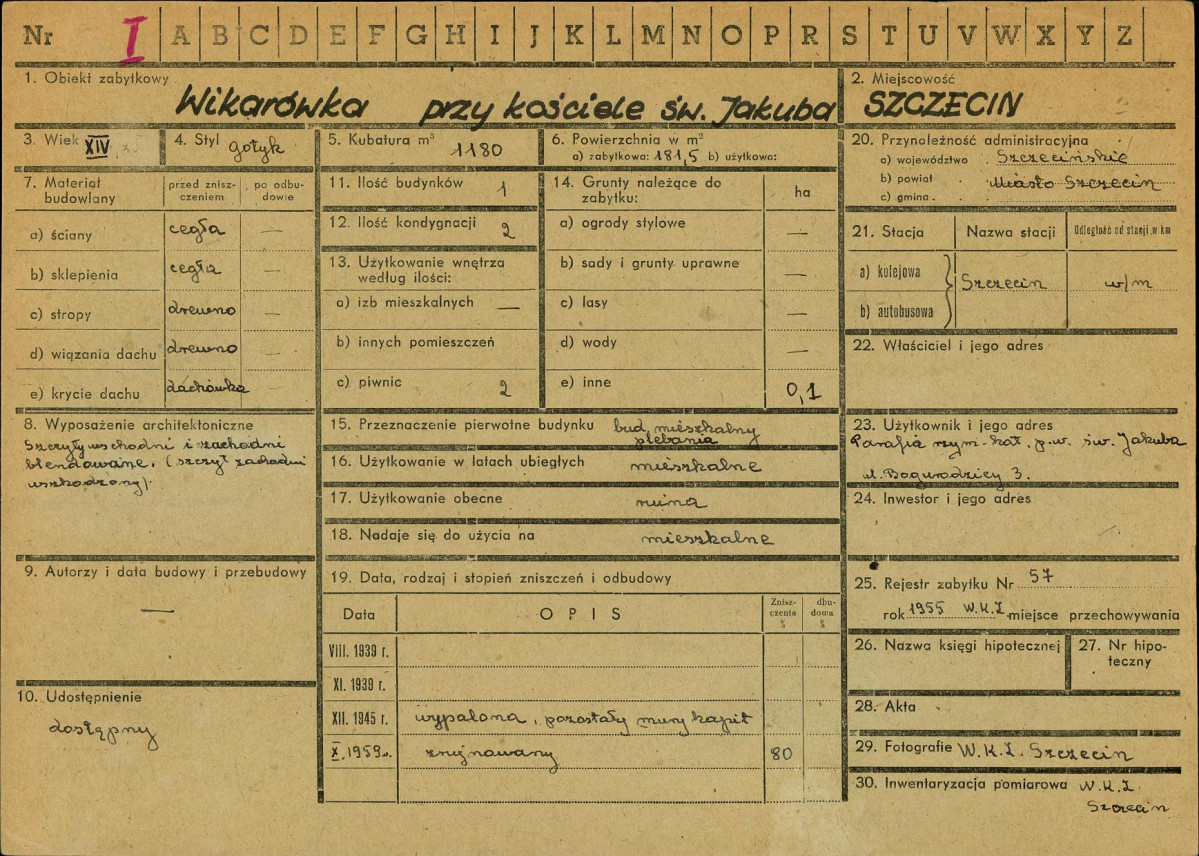 Nr I A B C D E F G H I J K L M N O P R S T U V W X Y Z
1. Obiekt zabytkowy
Wikarówka przy kościele św. Jakuba
2. Miejscowość
SZCZECIN
3. Wiek XIV
4. Styl gotyk
5. Kubatura m³ 1180
6. Powierzchnia w m²
a) zabytkowa: 181,5 b) użytkowa:
7. Materiał budowlany
przed znisz-
czeniem
po odbu-
dowie
a) ściany cegła —
b) sklepienia cegła —
c) stropy drewno —
d) wiązania dachu drewno —
e) krycie dachu dachówka —
8. Wyposażenie architektoniczne
Szczyty wschodni i zachodni
blendowane. (szczyt zachodni
uszkodzony).
9. Autorzy i data budowy i przebudowy
—
10. Udostępnienie
dostępny
11. Ilość budynków 1
12. Ilość kondygnacji 2
13. Użytkowanie wnętrza
według ilości:
a) izb mieszkalnych —
b) innych pomieszczeń
c) piwnic 2
14. Grunty należące do
zabytku:
ha
a) ogrody stylowe —
b) sady i grunty uprawne —
c) lasy
d) wody —
e) inne 0,1
15. Przeznaczenie pierwotne budynku bud. mieszkalny
plebania
16. Użytkowanie w latach ubiegłych mieszkalne
17. Użytkowanie obecne ruina
18. Nadaje się do użycia na mieszkalne
19. Data, rodzaj i stopień zniszczeń i odbudowy
Data OPIS
Znisz-
czenia
%
dbu-
dowa
%
VIII. 1939 r.
XI. 1939 r.
XII. 1945 r. wypalona, pozostały mury kapit
X. 1959 r. zrujnowany 80
20. Przynależność administracyjna
a) województwo Szczecińskie
b) powiat Miasto Szczecin
c) gmina
21. Stacja Nazwa stacji Odległość od stacji w km
a) kolejowa Szczecin w/m
b) autobusowa
22. Właściciel i jego adres
23. Użytkownik i jego adres
Parafia rzym-kat. p.w. św. Jakuba
ul. Bogurodzicy 3.
24. Inwestor i jego adres
25. Rejestr zabytku Nr 57
rok 1955 W.K.Z. miejsce przechowywania
26. Nazwa księgi hipotecznej
27. Nr hipo-
teczny
28. Akta
29. Fotografie W.K.Z. Szczecin
30. Inwentaryzacja pomiarowa W.K.Z.
Szczecin